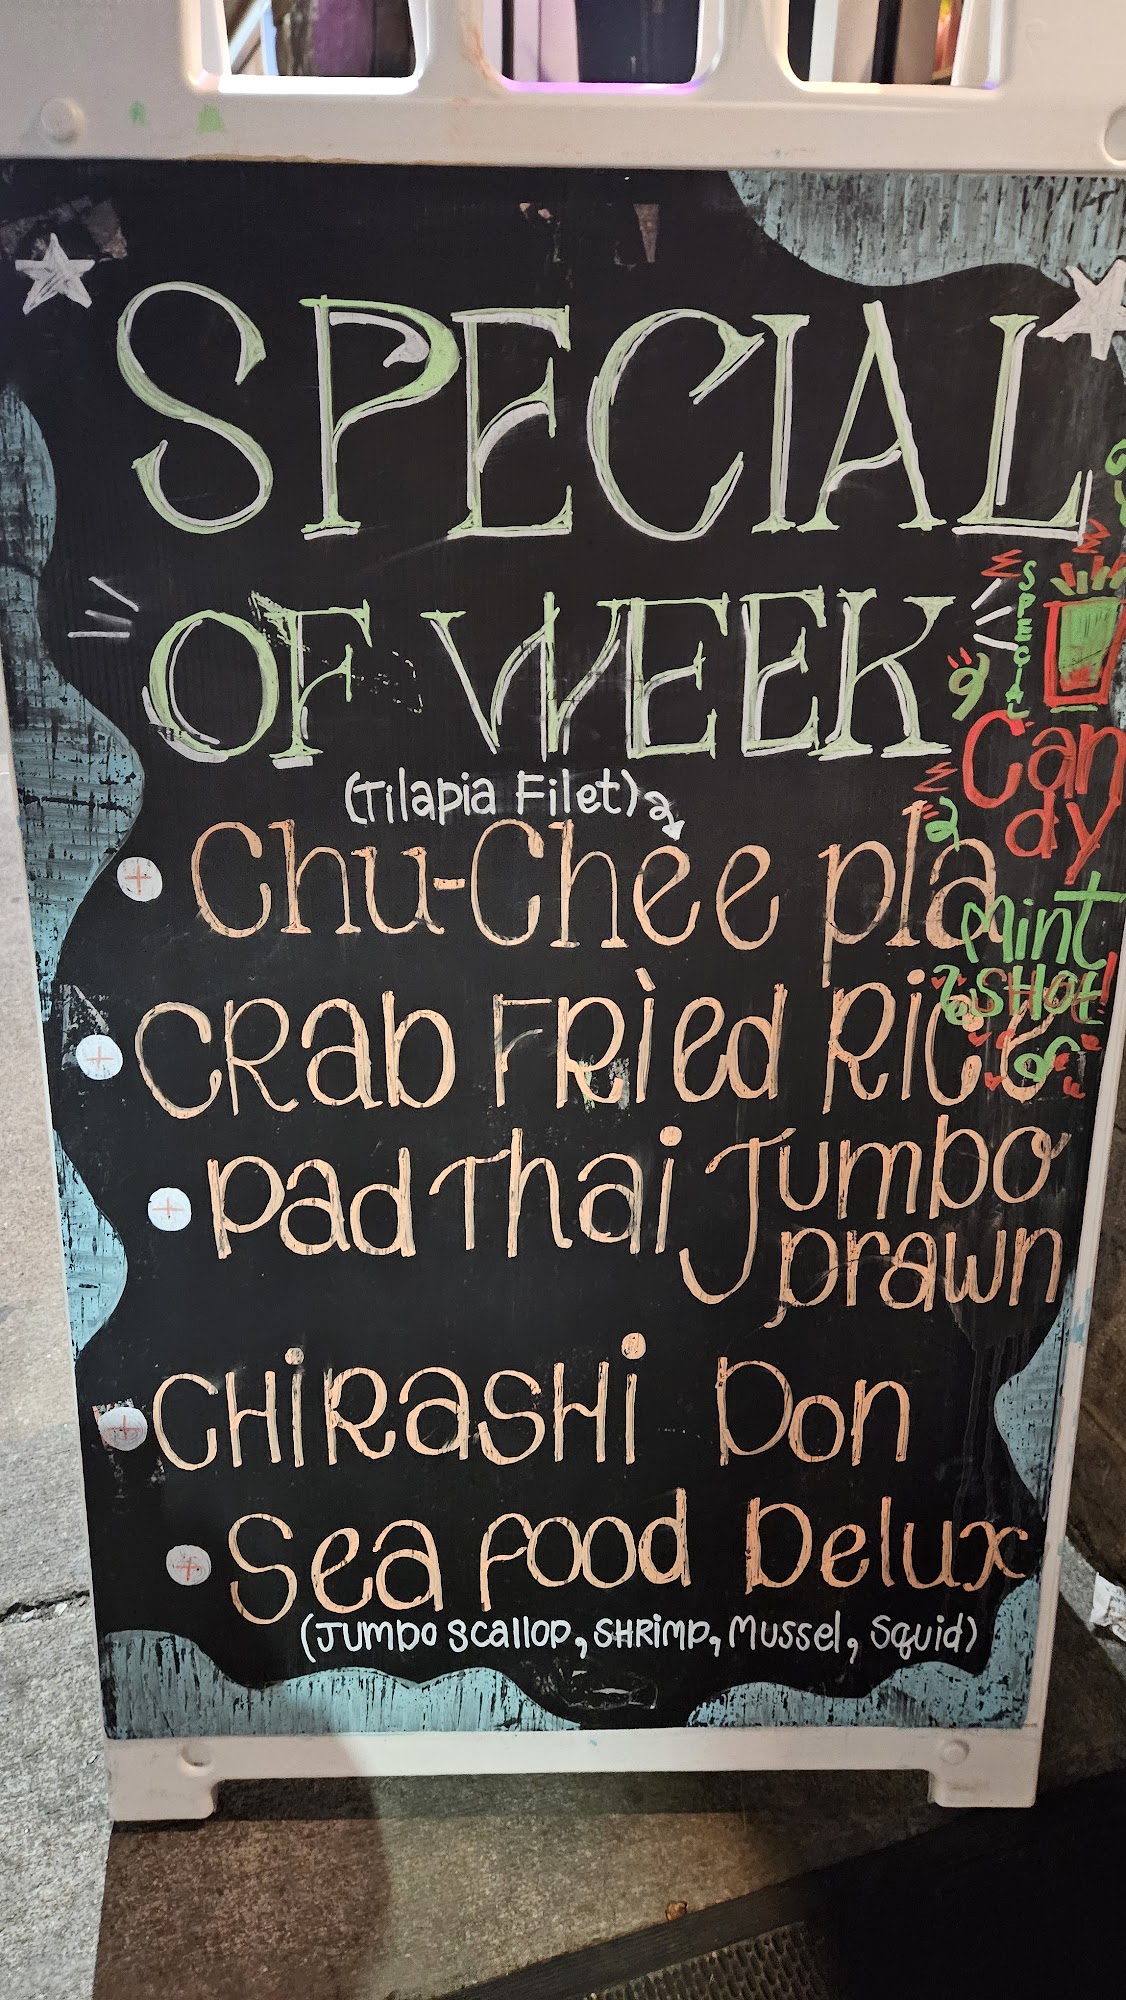 SPECIAL
OF WEEK
(Tilapia Filet)
Chu-Chee pla
CRab FRied Rice
Pad Thai Jumbo
prawn
CHiRasHi Don
Sea food Delux
(Jumbo Scallop, SHRimp, Mussel, Squid)
SPECIAL
Can
dy
Mint
SHOt!